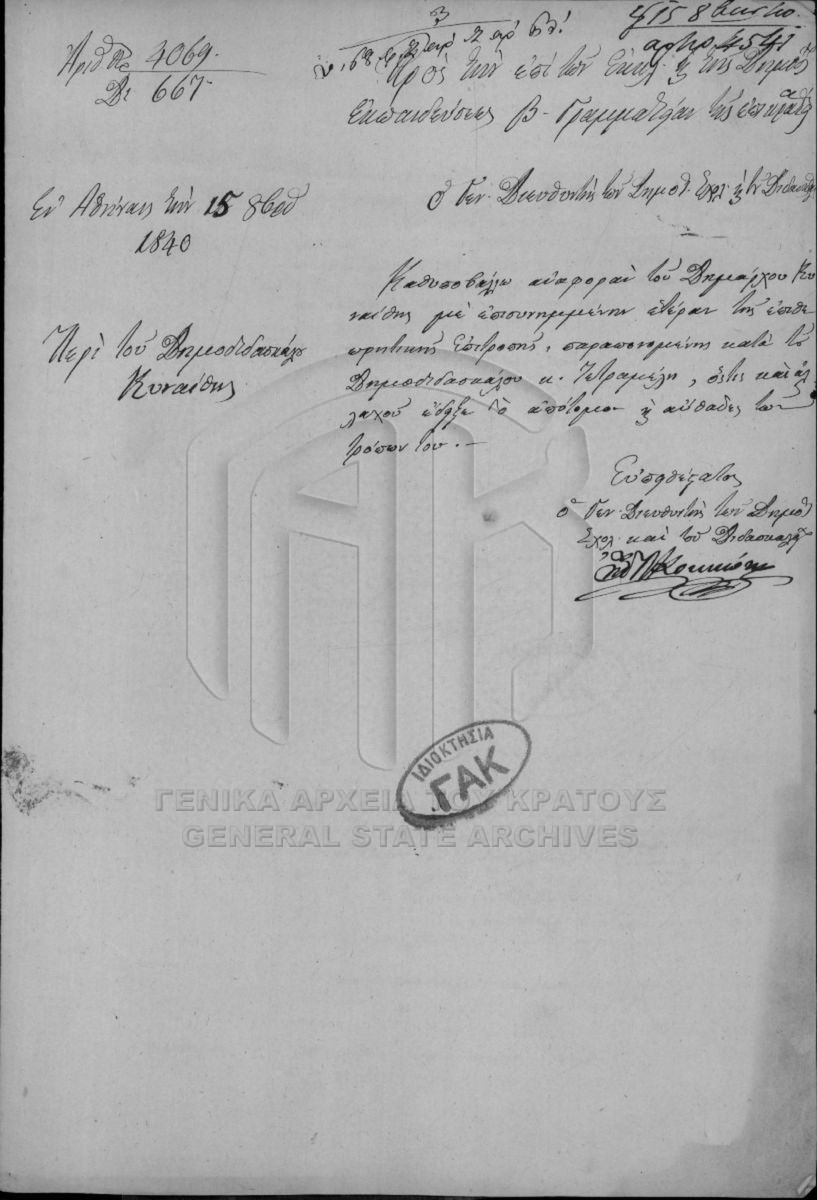 Ἀριθ. Πρ. 4069.
Δι. 667.
Ἐν Ἀθήναις τὴν 15 8βρίου
1840
Περὶ τοῦ Δημοδιδασκάλου
Κυναίθης
3
15 8
ἀριθ. 4541
Πρὸς τὴν ἐπὶ τῶν Ἐκκλ. κ τῆς Δημοσ
Ἐκπαιδεύσεως Β. Γραμματείαν τῆς ἐπικρατ
ὁ Γεν. Διευθυντὴς τῶν Δημοτ. Σχολ. κ τοῦ Διδασκαλ
Καθυποβάλλω ἀναφορὰν τοῦ Δημάρχου Κυ
ναίθης μὲ ἐπισυνημμένην ἑτέραν τῆς ἐπιθε
ωρητικῆς Ἐπιτροπῆς, παραπονουμένης κατὰ τοῦ
Δημοδιδασκάλου κ. Πετραμέλη, ὅστις καὶ ἀλ
λαχοῦ ἔδειξε τὸ ἀπότομον κ αὔθαδες τῶν
τρόπων του. —
Εὐπειθέστατος
ὁ Γεν. Διευθυντὴς τῶν Δημοτ
Σχολ. καὶ τοῦ Διδασκαλ
Κοκκώνης
ΙΔΙΟΚΤΗΣΙΑ
ΓΑΚ
ΓΕΝΙΚΑ ΑΡΧΕΙΑ ΤΟΥ ΚΡΑΤΟΥΣ
GENERAL STATE ARCHIVES